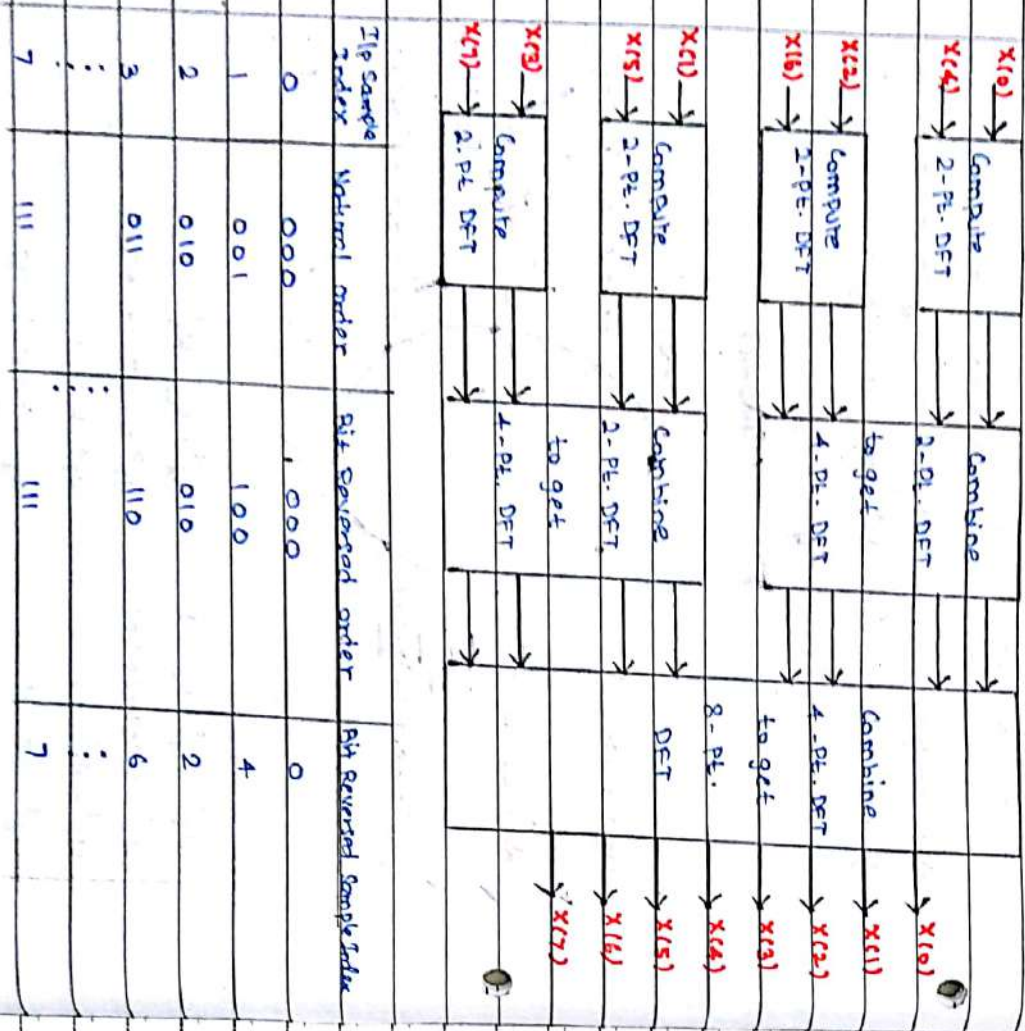 x(0)
x(4)
Compute
2-pt. DFT
x(2)
x(6)
Compute
2-pt. DFT
x(1)
x(5)
Compute
2-pt. DFT
x(3)
x(7)
Compute
2-pt DFT
Combine
2-pt. DFT
to get
4-pt. DFT
Combine
2-pt. DFT
to get
4-pt. DFT
Combine
4-pt. DFT
to get
8-pt.
DFT
X(0)
X(1)
X(2)
X(3)
X(4)
X(5)
X(6)
X(7)
I/p Sample Index Natural order Bit Reversed order Bit Reversed Sample Index
0 000 000 0
1 001 100 4
2 010 010 2
3 011 110 6
7 111 111 7